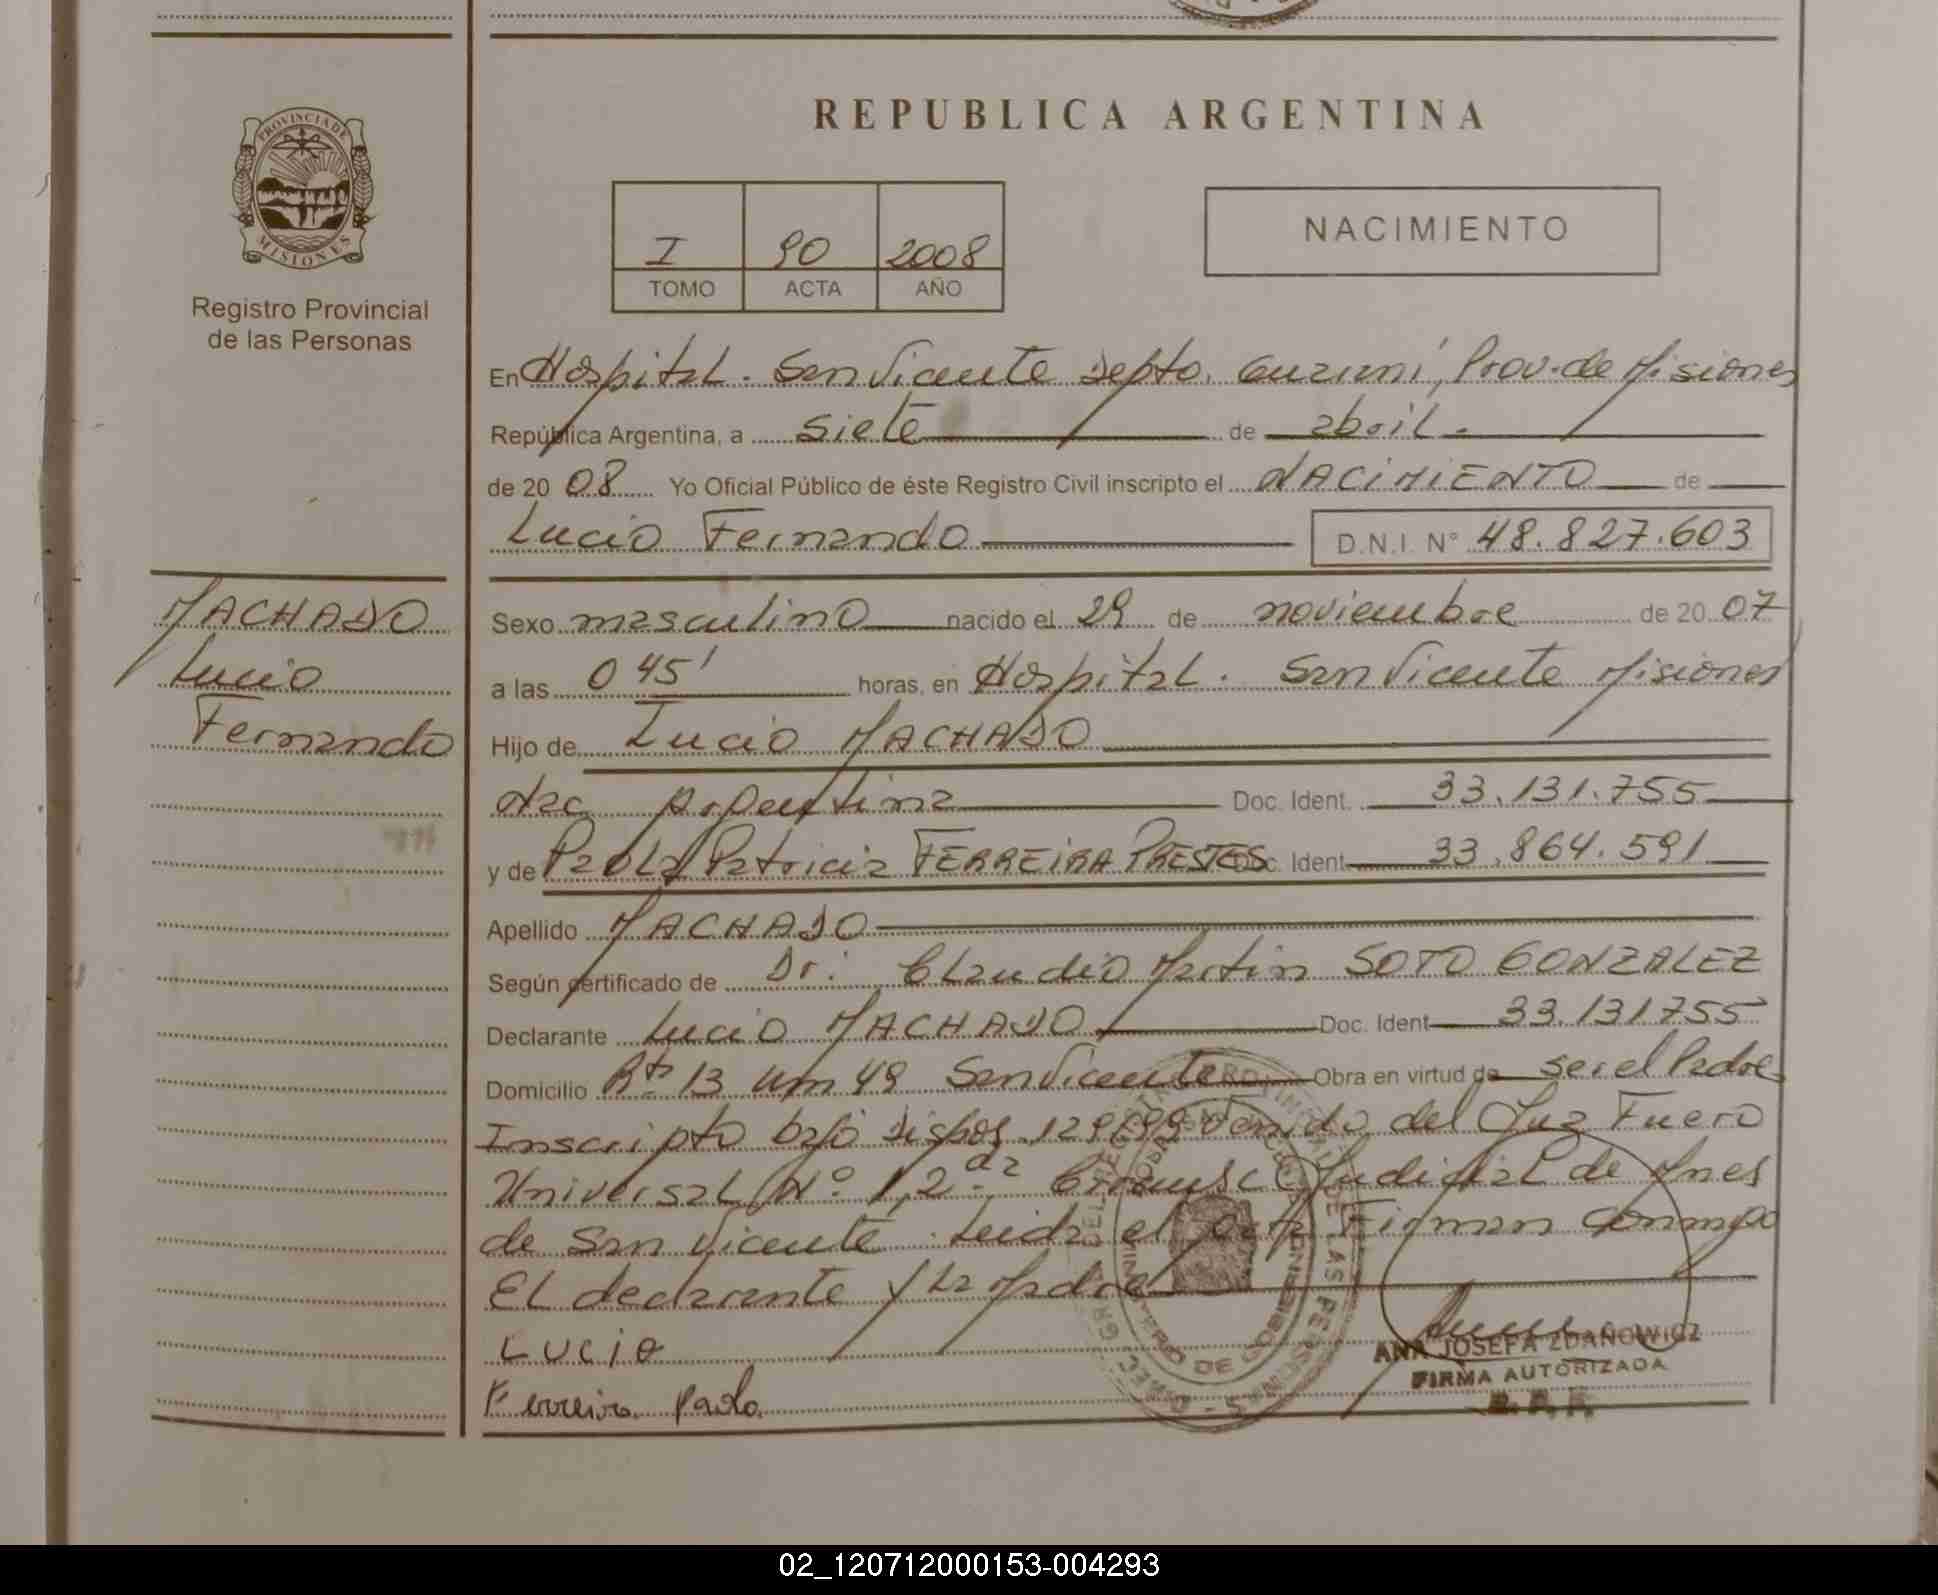 PROVINCIA DE
MISIONES
Registro Provincial
de las Personas
REPUBLICA ARGENTINA
I 90 2008
TOMO ACTA AÑO
NACIMIENTO
En Hospital. San Vicente Depto. Guaraní, Prov. de Misiones
República Argentina, a siete de abril.
de 20 08 Yo Oficial Público de éste Registro Civil inscripto el NACIMIENTO de
Lucio Fernando D.N.I. N° 48.827.603
MACHADO
Lucio
Fernando
Sexo masculino nacido el 29 de noviembre de 20 07
a las 0 45' horas, en Hospital. San Vicente Misiones
Hijo de Lucio MACHADO
Nac. Argentina Doc. Ident. 33.131.755
y de Paola Patricia FERREIRA PRESTES Doc. Ident 33.864.591
Apellido MACHADO
Según certificado de Dr. Claudio Martin SOTO GONZALEZ
Declarante Lucio MACHADO Doc. Ident 33.131755
Domicilio Rta 13 Km 49 San Vicente Obra en virtud de ser el Padre
Inscripto bajo Dispos. 129/99 venido del Juz Fuero
Universal N° 1, 2.da Circunsc Judicial de Mnes
de San Vicente. Leida el Acta Firman conmigo
El declarante y la Madre
LUCIO
Ferreira Paola
ANA JOSEFA ZDAÑOWICZ
FIRMA AUTORIZADA
R. P. P.
MINISTERIO DE GOBIERNO
02_120712000153-004293